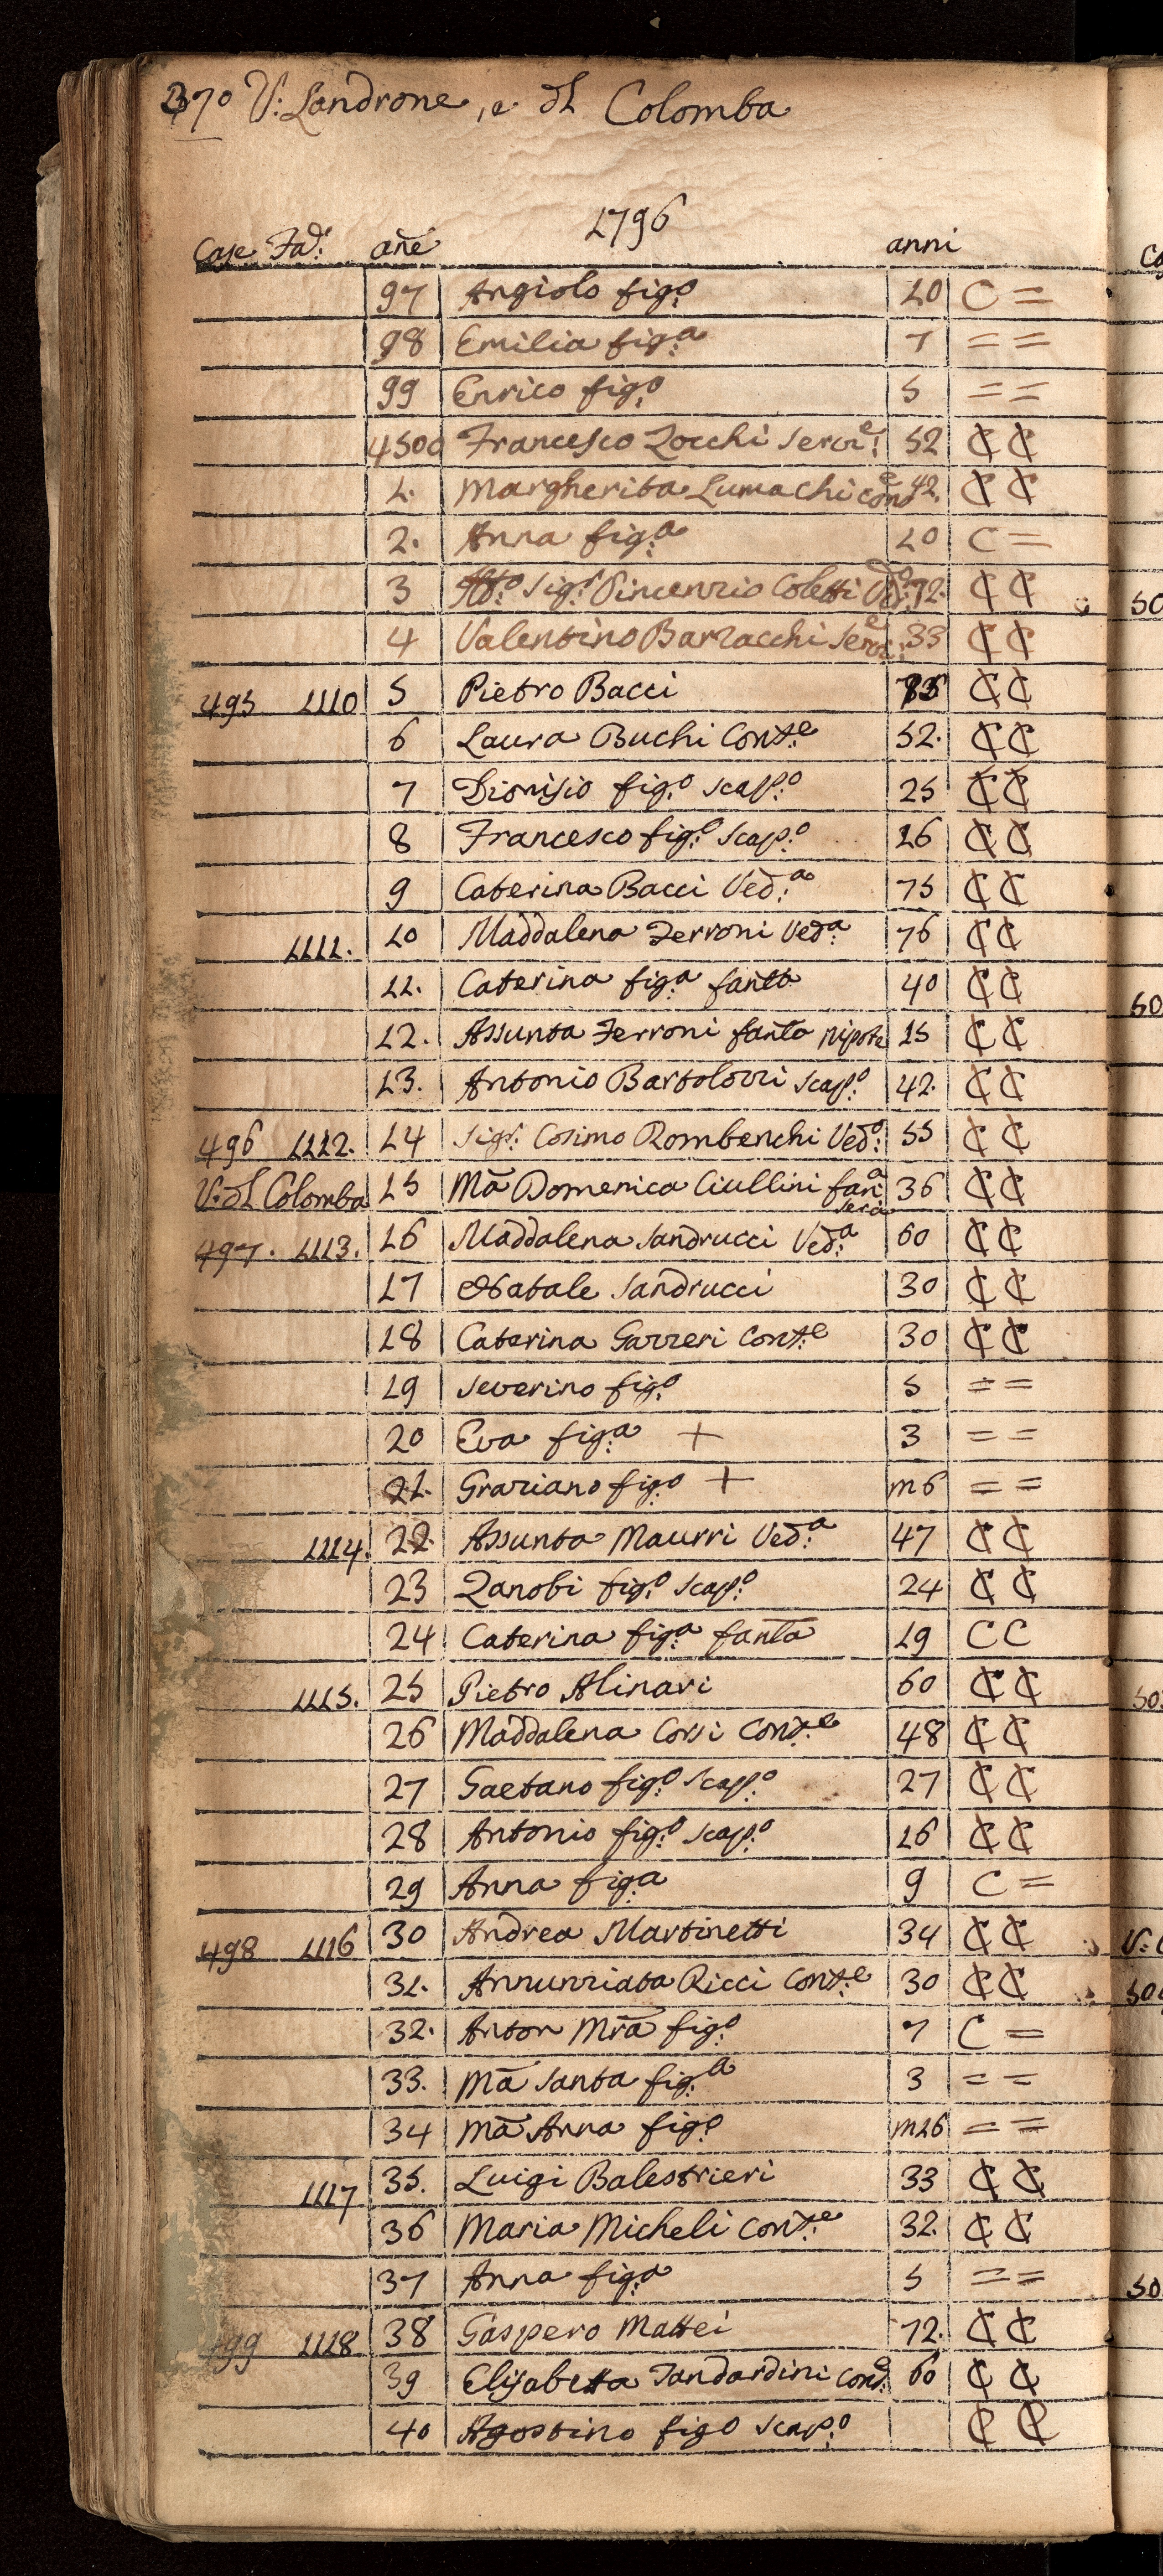 370 V: Landrone, e dL Colomba
1796
Case Fa: añe anni
97 Angiolo fig.o 10 C =
98 Emilia fig.a 7 = =
99 Enrico fig.o 5 = =
4500 Francesco Zocchi Serv.e 52 ₵ ₵
1. Margherita Lumachi Con.e 42. ₵ ₵
2. Anna fig.a 10 C =
3 Sig.r Vincenzio Coletti 72. ₵ ₵
4 Valentino Barzacchi Serv.e 33 ₵ ₵
495 1110 5 Pietro Bacci ₵ ₵
6 Laura Buchi Cont.e 52. ₵ ₵
7 Dionisio fig.o scap.o 25 ₵ ₵
8 Francesco fig.o scap.o 16 ₵ ₵
9 Caterina Bacci Ved.a 75 ₵ ₵
1111. 10 Maddalena Ferroni Ved.a 76 ₵ ₵
11. Caterina fig.a fanta 40 ₵ ₵
12. Assunta Ferroni fanta nipote 15 ₵ ₵
13. Antonio Bartolozzi scap.o 42. ₵ ₵
496 1112. 14 Sig.r Cosimo Rombenchi Ved.o 55 ₵ ₵
V. dL Colomba 15 Mā Domenica Ciullini fan.a serva 36 ₵ ₵
497. 1113. 16 Maddalena Sandrucci Ved.a 60 ₵ ₵
17 Natale Sandrucci 30 ₵ ₵
18 Caterina Gazzeri Cont.e 30 ₵ ₵
19 Severino fig.o 5 = =
20 Eva fig.a + 3 = =
21. Graziano fig.o + m6 = =
1114. 22. Assunta Maurri Ved.a 47 ₵ ₵
23 Zanobi fig.o scap.o 24 ₵ ₵
24 Caterina fig.a fanta 19 C C
1115. 25 Pietro Alinari 60 ₵ ₵
26 Maddalena Corsi Cont.e 48 ₵ ₵
27 Gaetano fig.o scap.o 27 ₵ ₵
28 Antonio fig.o scap.o 16 ₵ ₵
29 Anna fig.a 9 C =
498 1116 30 Andrea Martinetti 34 ₵ ₵
31. Annunziata Ricci Cont.e 30 ₵ ₵
32. Anton Mrā fig.o 7 C =
33. Mā Santa fig.a 3 = =
34 Mā Anna fig.o m16 = =
1117 35. Luigi Balestrieri 33 ₵ ₵
36 Maria Micheli Cont.e 32. ₵ ₵
37 Anna fig.a 5 = =
499 1118 38 Gaspero Mattei 72. ₵ ₵
39 Elisabetta Tandardini Con.e 60 ₵ ₵
40 Agostino figo scap.o ₵ ₵